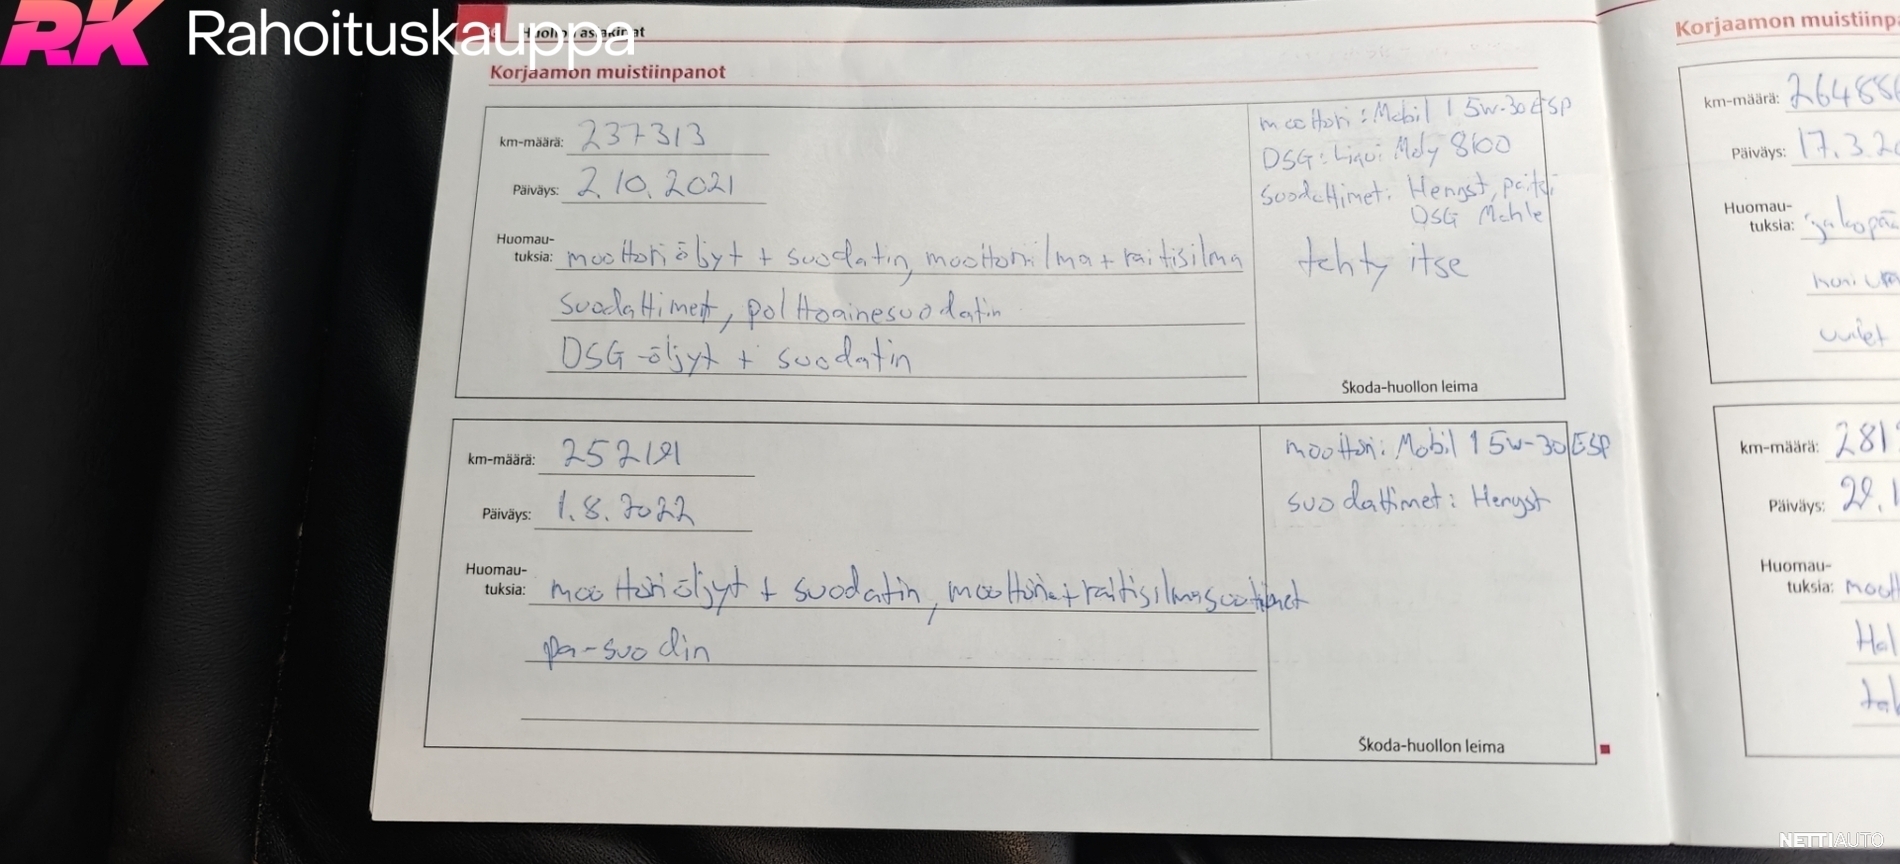 RK Rahoituskauppa
Korjaamon muistiinpanot
km-määrä: 237313
Päiväys: 2.10.2021
Huomau-
tuksia: moottoriöljyt + suodatin, moottoriilma + raitisilma
suodattimet, polttoainesuodatin
DSG-öljyt + suodatin
moottori: Mobil 1 5w-30 ESP
DSG: Liqui Moly 8100
Suodattimet: Hengst, paitsi
DSG Mahle
tehty itse
Škoda-huollon leima
km-määrä:
Päiväys: 1.8.2022
Huomau-
tuksia: moottoriöljyt + suodatin,
pa-suodin
moottori: Mobil 1 5w-30 ESP
suodattimet: Hengst
Škoda-huollon leima
Korjaamon muistiinp
km-määrä: 26488
Päiväys: 17.3.2
Huomau-
tuksia:
km-määrä: 281
Päiväys:
Huomau-
tuksia: moott
Hal
NETTIAUTO